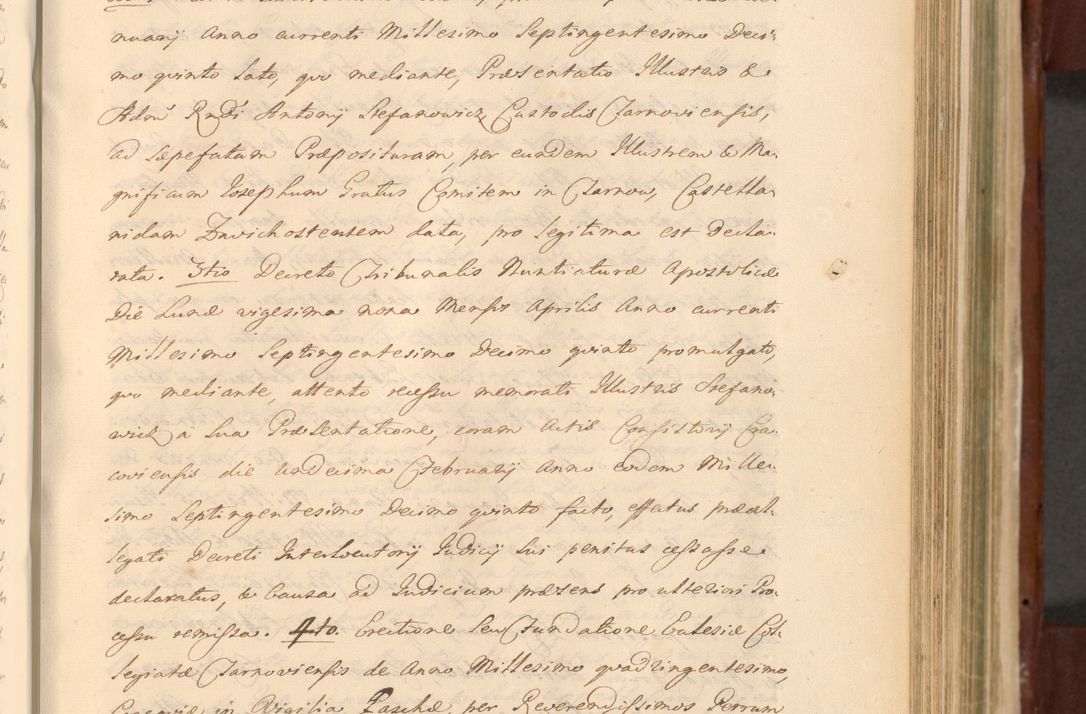 nuarij Anno currenti Millesimo Septingentesimo Deci-
mo quinto lato, quo mediante, Præsentatio Illustris &
Admˢ Rndi Antonij Stefanowicz Custodis Tarnoviensis,
ad sæpefatam Præposituram, per eundem Illustrem & Ma-
gnificum Josephum Gratus Comitem in Tarnow, Castella-
nidam Zawichostensem data, pro legitima est decla-
rata. 3tio Decreto Tribunalis Nuntiaturæ Apostolicæ
Die Lunæ vigesima nona Mensis Aprilis Anno currenti
Millesimo Septingentesimo Decimo quinto promulgato,
quo mediante, attento recessu memorati Illustris Stefano-
wicz a sua Præsentatione, coram Actis Consistorij Cra-
coviensis die undecima Februarij Anno eodem Mille-
simo Septingentesimo Decimo quinto facto, effectus præal-
legati Decreti Interlocutorij Judicij sui penitus cessasse
declaratus, & Causa ad Judicium præsens pro ulteriori Pro-
cessu remissa. 4to. Erectione seu Fundatione Eclesiæ Col-
legiatæ Tarnoviensis de Anno Millesimo quadringentesimo,
in Vigilia Paschæ, per Reverendissimos Petrum